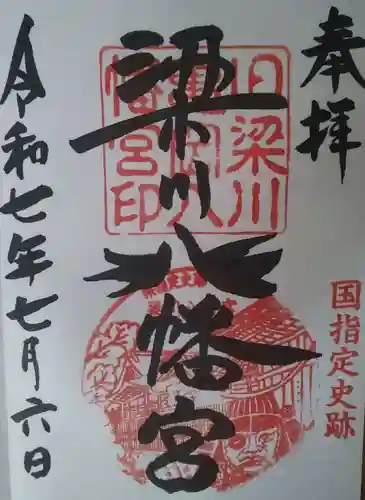 奉拝
国指定史跡
旧梁川
亀岡八
幡宮印
梁川八幡宮
令和七年七月六日